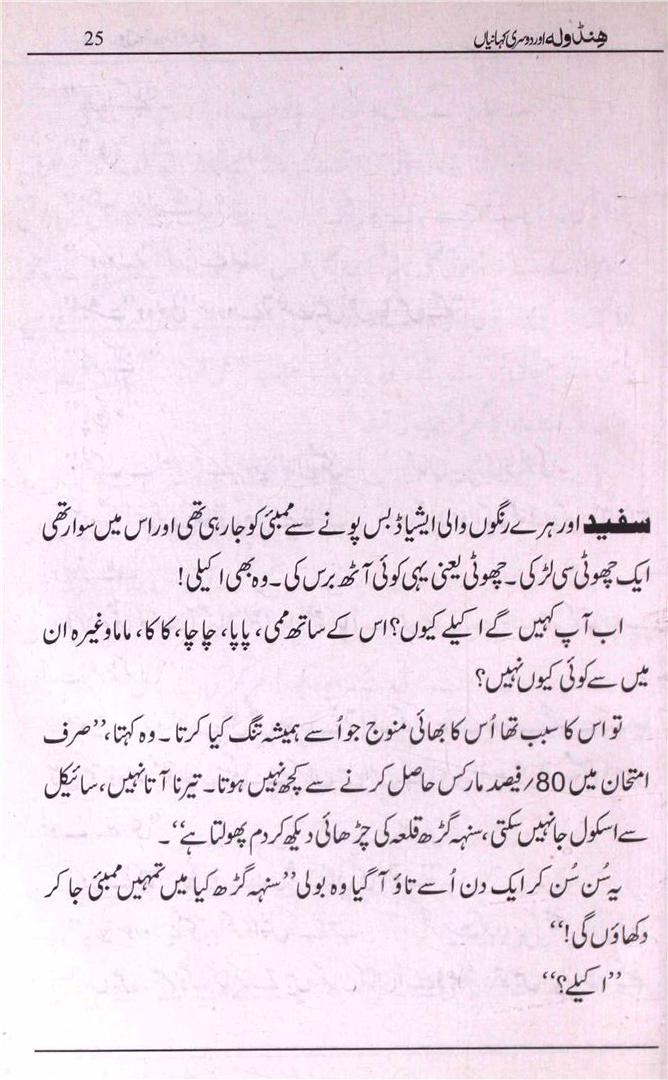 ہنڈولہ اور دوسری کہانیاں 25
سفید اور ہرے رنگوں والی ایشیاڈ بس پونے سے ممبئی کو جا رہی تھی اور اس میں سوار تھی
ایک چھوٹی سی لڑکی۔ چھوٹی یعنی یہی کوئی آٹھ برس کی۔ وہ بھی اکیلی!
اب آپ کہیں گے اکیلے کیوں؟ اس کے ساتھ ممی، پاپا، چاچا، کاکا، ماما وغیرہ ان
میں سے کوئی کیوں نہیں؟
تو اس کا سبب تھا اُس کا بھائی منوج جو اُسے ہمیشہ تنگ کیا کرتا۔ وہ کہتا، ”صرف
امتحان میں 80؍ فیصد مارکس حاصل کرنے سے کچھ نہیں ہوتا۔ تیرنا آتا نہیں، سائیکل
سے اسکول جا نہیں سکتی، سنہہ گڑھ قلعہ کی چڑھائی دیکھ کر دم پھولتا ہے“۔
یہ سُن سُن کر ایک دن اُسے تاؤ آ گیا وہ بولی ”سنہہ گڑھ کیا میں تمہیں ممبئی جا کر
دکھاؤں گی!“
”اکیلے؟“